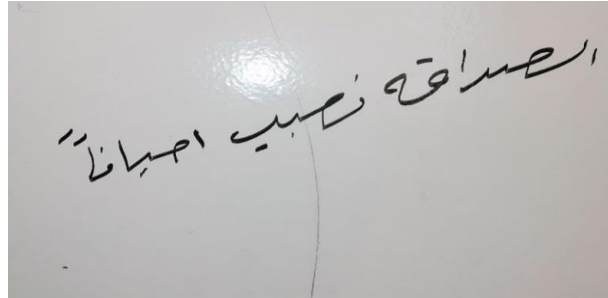 الصداقه نصيب احياناً